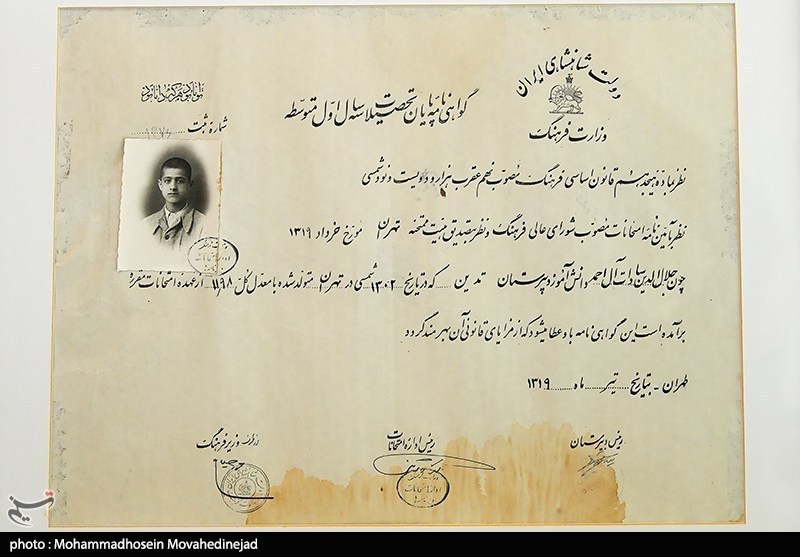 دولت شاهنشاهی ایران
وزارت فرهنگ
گواهی نامه پایان تحصیلات سه سال اول متوسطه
توانا بود هر که دانا بود
شماره ثبت
نظر بماده هیجدهم قانون اساسی فرهنگ مصوب نهم عقرب هزار و دویست و نود شمسی
نظر بآئین نامه امتحانات مصوب شورای عالی فرهنگ و نظر بتصدیق هیئت ممتحنه تهران مورخ خرداد ۱۳۱۹
چون جلال الدین سادات آل احمد دانش آموز دبیرستان تمدن که در تاریخ ۱۳۰۲ شمسی در تهران متولد شده با معدل کل ۱۱٫۹۸ از عهده امتحانات مقرره
برآمده است این گواهی نامه باو عطا میشود که از مزایای قانونی آن بهره مند گردد
طهران - بتاریخ تیر ماه ۱۳۱۹
رئیس دبیرستان
رئیس اداره امتحانات
از طرف وزیر فرهنگ
تسنیم
photo : Mohammadhosein Movahedinejad